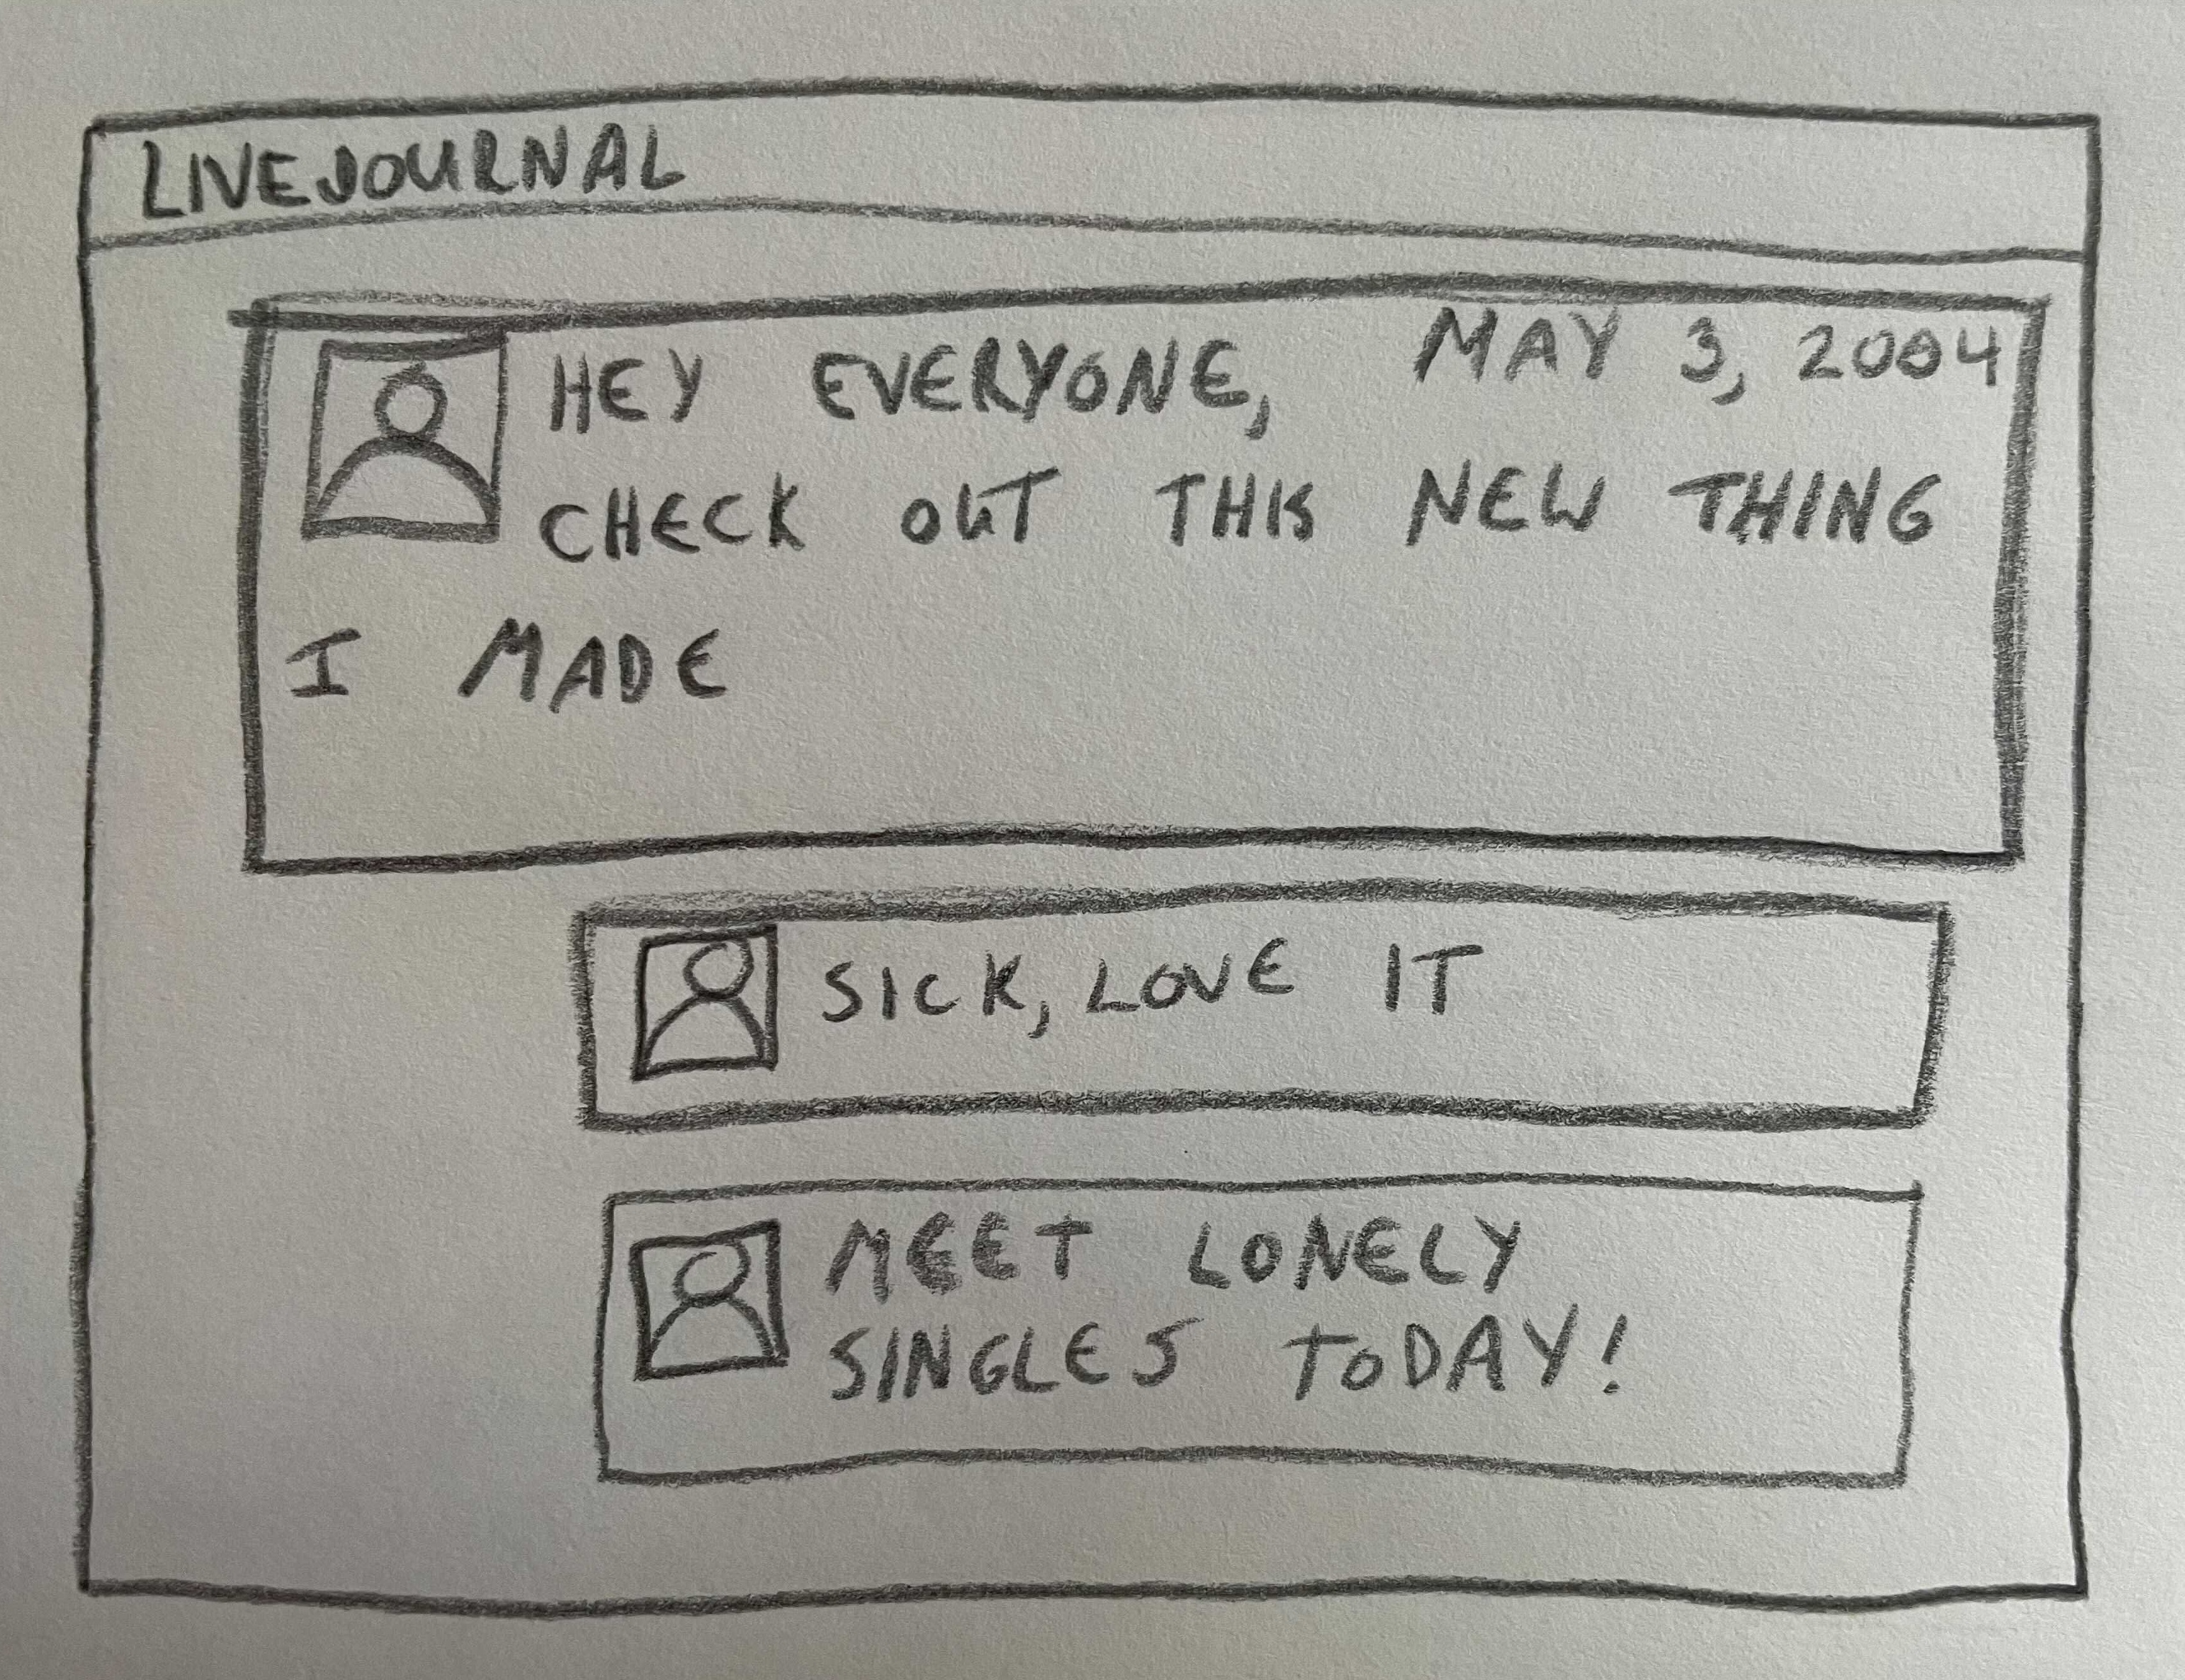 LIVEJOURNAL
HEY EVERYONE, MAY 3, 2004
CHECK OUT THIS NEW THING
I MADE
SICK, LOVE IT
MEET LONELY
SINGLES TODAY!